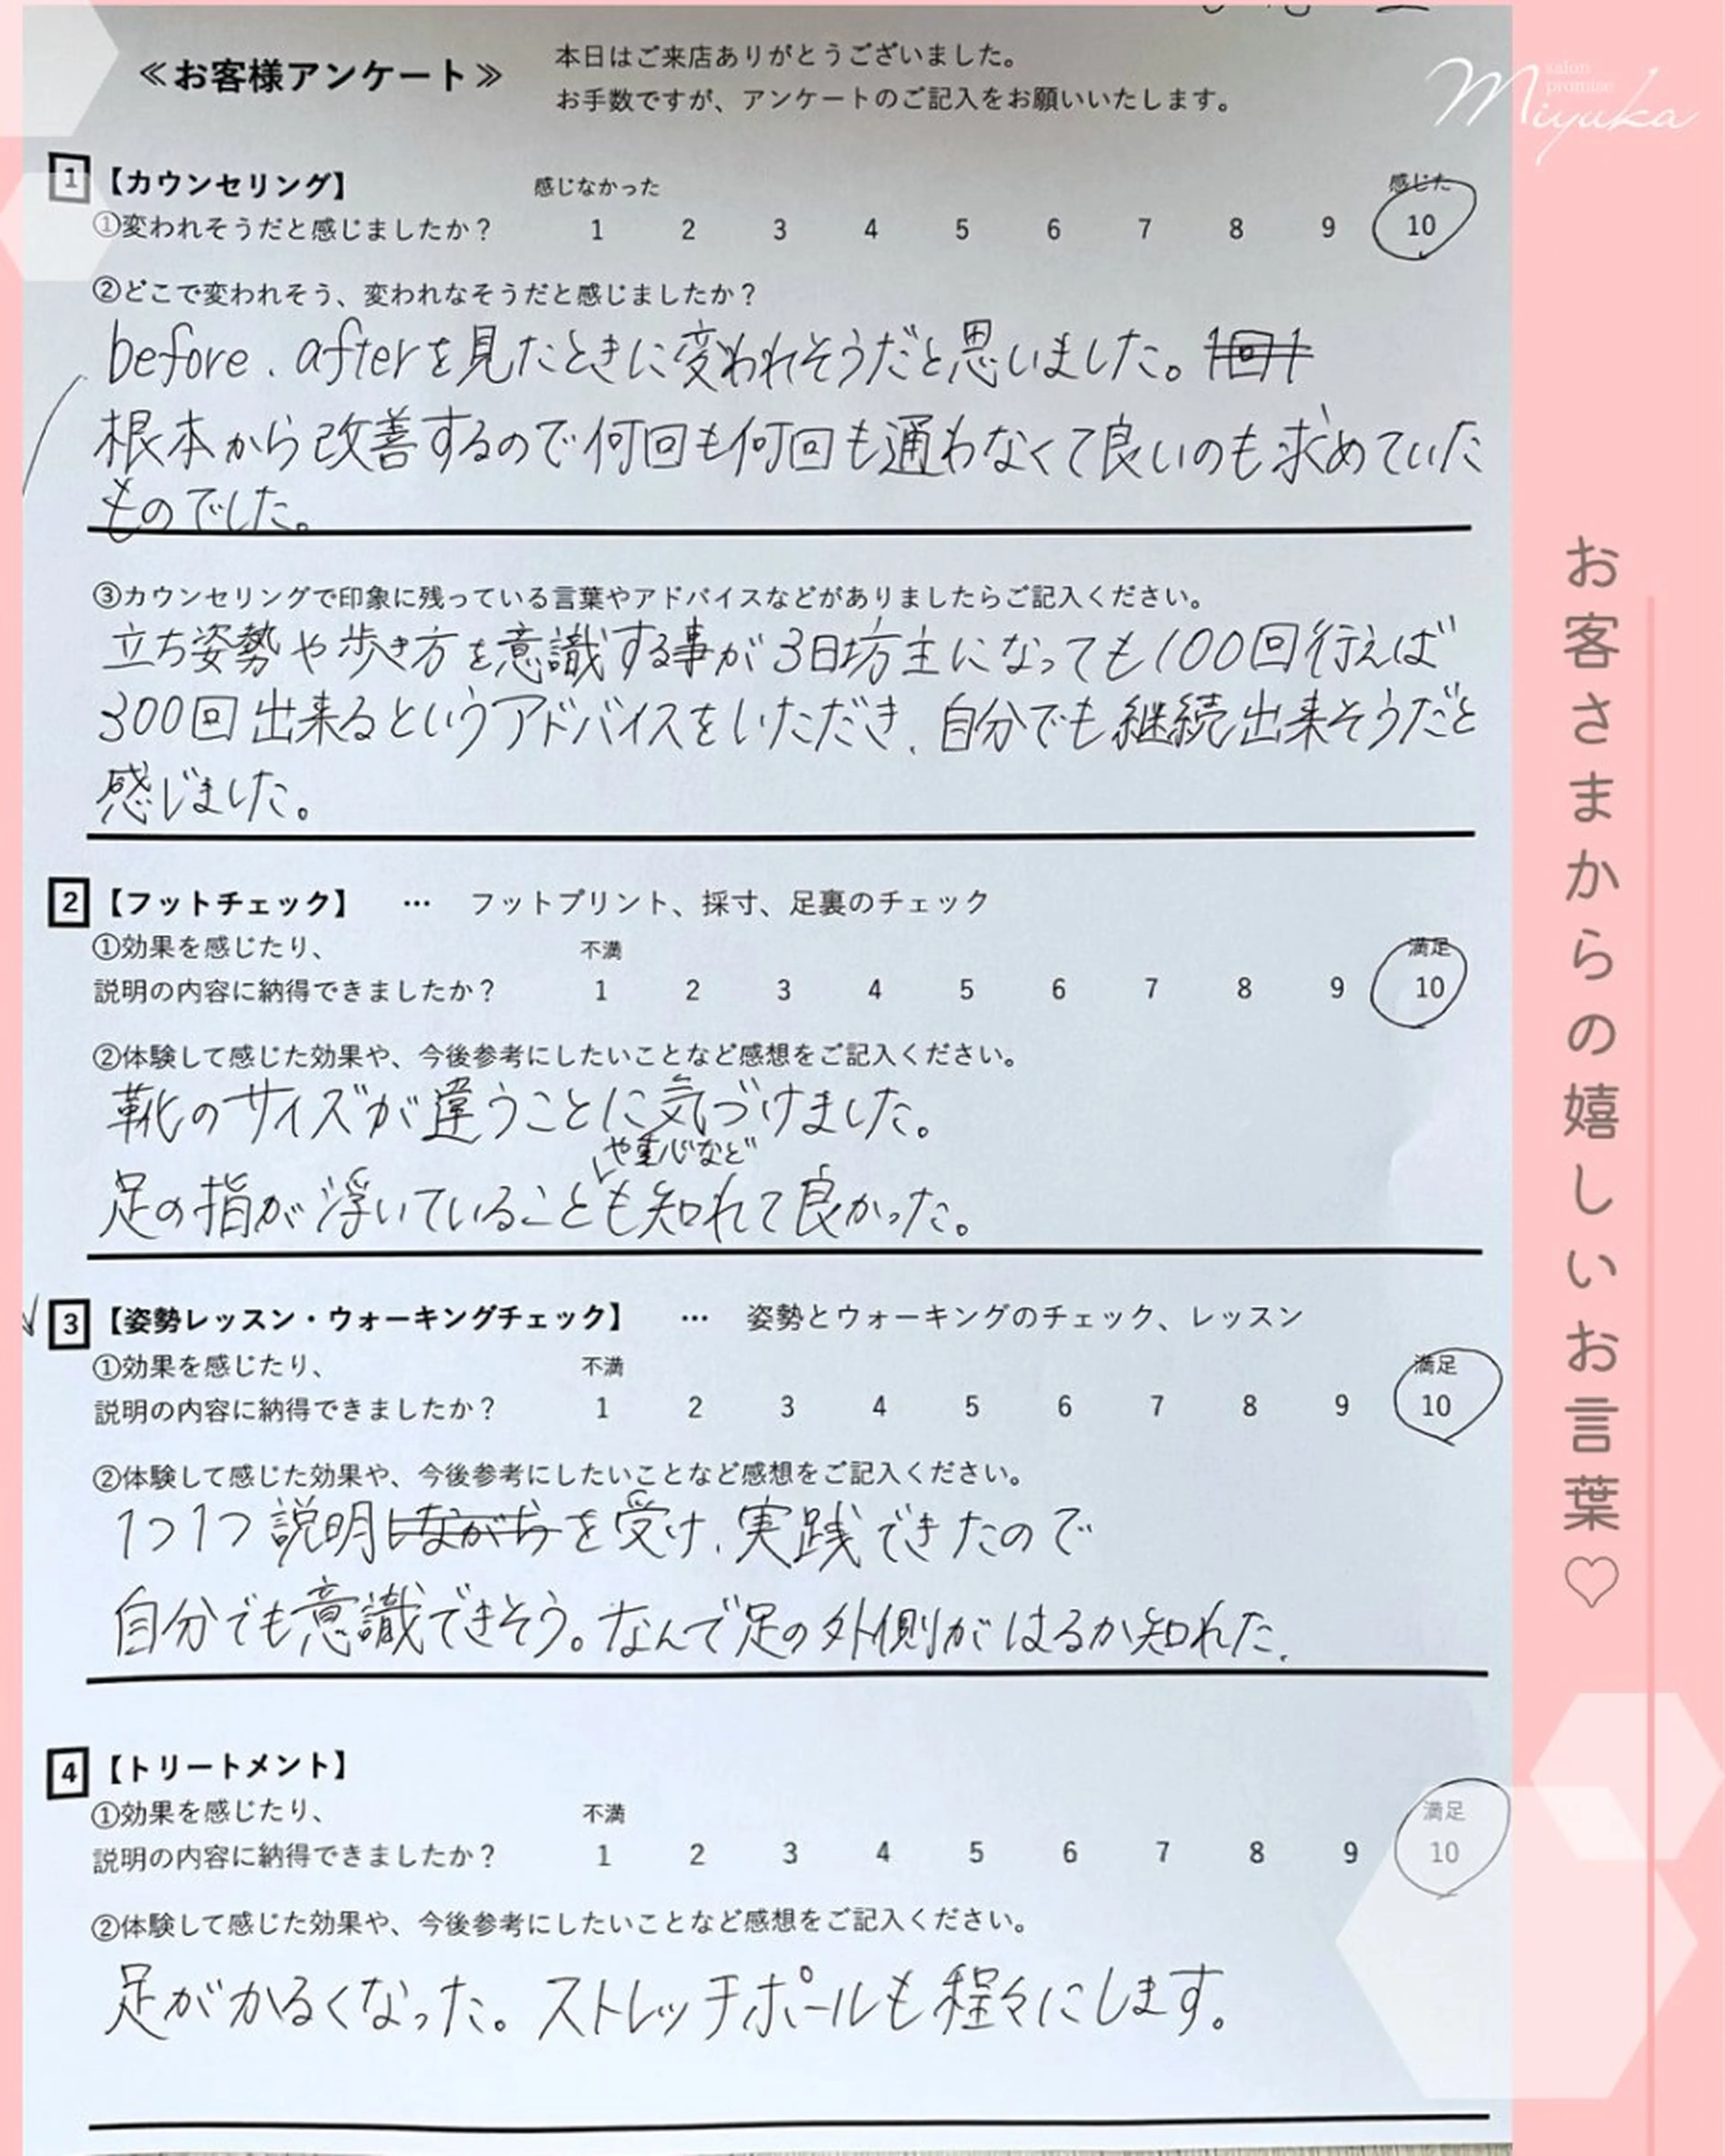 ≪お客様アンケート≫
本日はご来店ありがとうございました。
お手数ですが、アンケートのご記入をお願いいたします。
salon
promise
Miyuka
1 【カウンセリング】
感じなかった 感じた
①変われそうだと感じましたか？ 1 2 3 4 5 6 7 8 9 10
②どこで変われそう、変われなそうだと感じましたか？
before.afterを見たときに変われそうだと思いました。
根本から改善するので何回も何回も通わなくて良いのも求めていた
ものでした。
③カウンセリングで印象に残っている言葉やアドバイスなどがありましたらご記入ください。
立ち姿勢や歩き方を意識する事が3日坊主になっても100回行えば
300回出来るというアドバイスをいただき、自分でも継続出来そうだと
感じました。
2 【フットチェック】 … フットプリント、採寸、足裏のチェック
①効果を感じたり、 不満 満足
説明の内容に納得できましたか？ 1 2 3 4 5 6 7 8 9 10
②体験して感じた効果や、今後参考にしたいことなど感想をご記入ください。
靴のサイズが違うことに気づけました。
や重心など
足の指が浮いていることも知れて良かった。
3 【姿勢レッスン・ウォーキングチェック】 … 姿勢とウォーキングのチェック、レッスン
①効果を感じたり、 不満 満足
説明の内容に納得できましたか？ 1 2 3 4 5 6 7 8 9 10
②体験して感じた効果や、今後参考にしたいことなど感想をご記入ください。
1つ1つ説明しながらを受け、実践できたので
自分でも意識できそう。なんで足の外側がはるか知れた、
4 【トリートメント】
①効果を感じたり、 不満 満足
説明の内容に納得できましたか？ 1 2 3 4 5 6 7 8 9 10
②体験して感じた効果や、今後参考にしたいことなど感想をご記入ください。
足がかるくなった。ストレッチポールも程々にします。
お客さまからの嬉しいお言葉♡